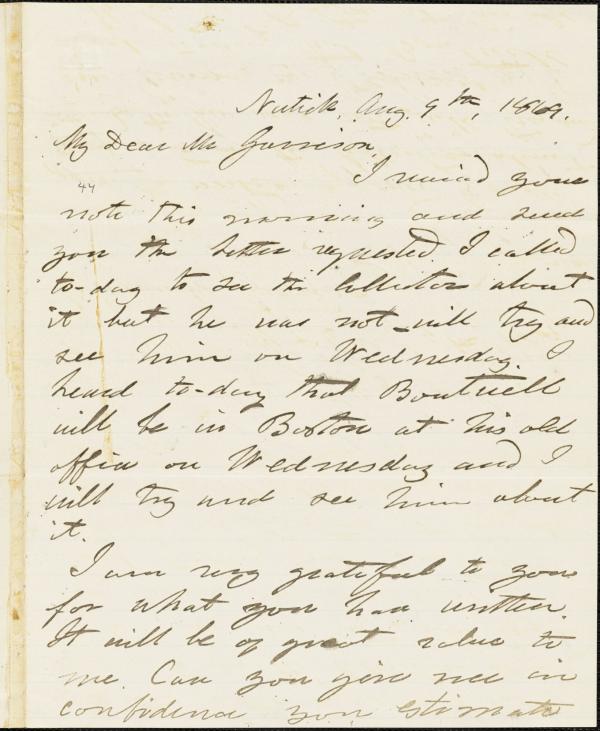 Natick, Aug. 9th, 1869.
My Dear Mr Garrison,
I received your
44
note this morning and send
you the letter requested. I called
to-day to see the Collector about
it but he was not_will try and
see him on Wednesday. I
heard to-day that Boutwell
will be in Boston at his old
office on Wednesday and I
will try and see him about
it.
I am very grateful to you
for what you have written.
It will be of great value to
me. Can you give me in
confidence you estimate